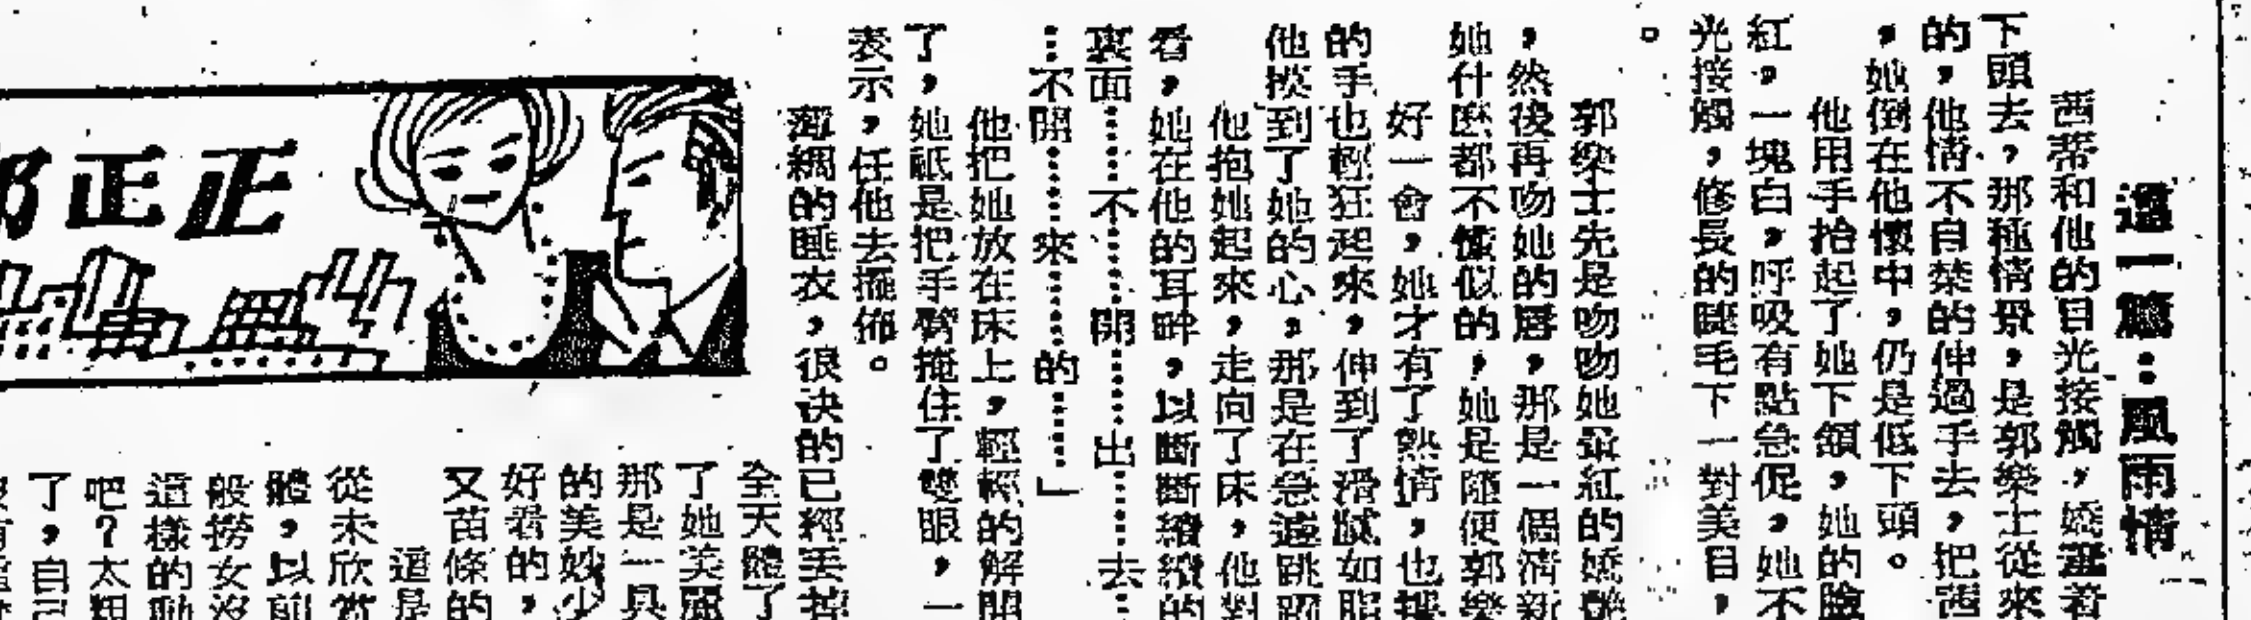 這一篇：風雨情
茜蒂和他的目光接觸，嬌羞着
下頭去，那種情景，是郭樂士從來
的，他情不自禁的伸過手去，把茜
，她倒在他懷中，仍是低下頭。
他用手抬起了她下頷，她的臉
紅，一塊白，呼吸有點急促，她不
光接觸，修長的睫毛下一對美目，
。
郭樂士先是吻吻她最紅的嬌艷
，然後再吻她的唇，那是一個清新
她什麽都不懂似的，她是隨便郭樂
好一會，她才有了熱情，也
的手也輕狂起來，伸到了滑膩如脂
他摸到了她的心，那是在急遽跳
他抱她起來，走向了床，他對
看，她在他的耳畔，以斷斷續續的
裏面……不……開……出……去…
…不開……來……的……」
他把她放在床上，輕輕的解開
了，她祇是把手臂掩住了雙眼，一
表示，任他去擺佈。
薄綢的睡衣，很快的已經丟掉
全天體了
了她美麗
那是一具
的美妙少
好看的，
又苗條的
這是
從未欣賞
體，以前
般撈女沒
這樣的動
吧？太粗
了，自己
正正